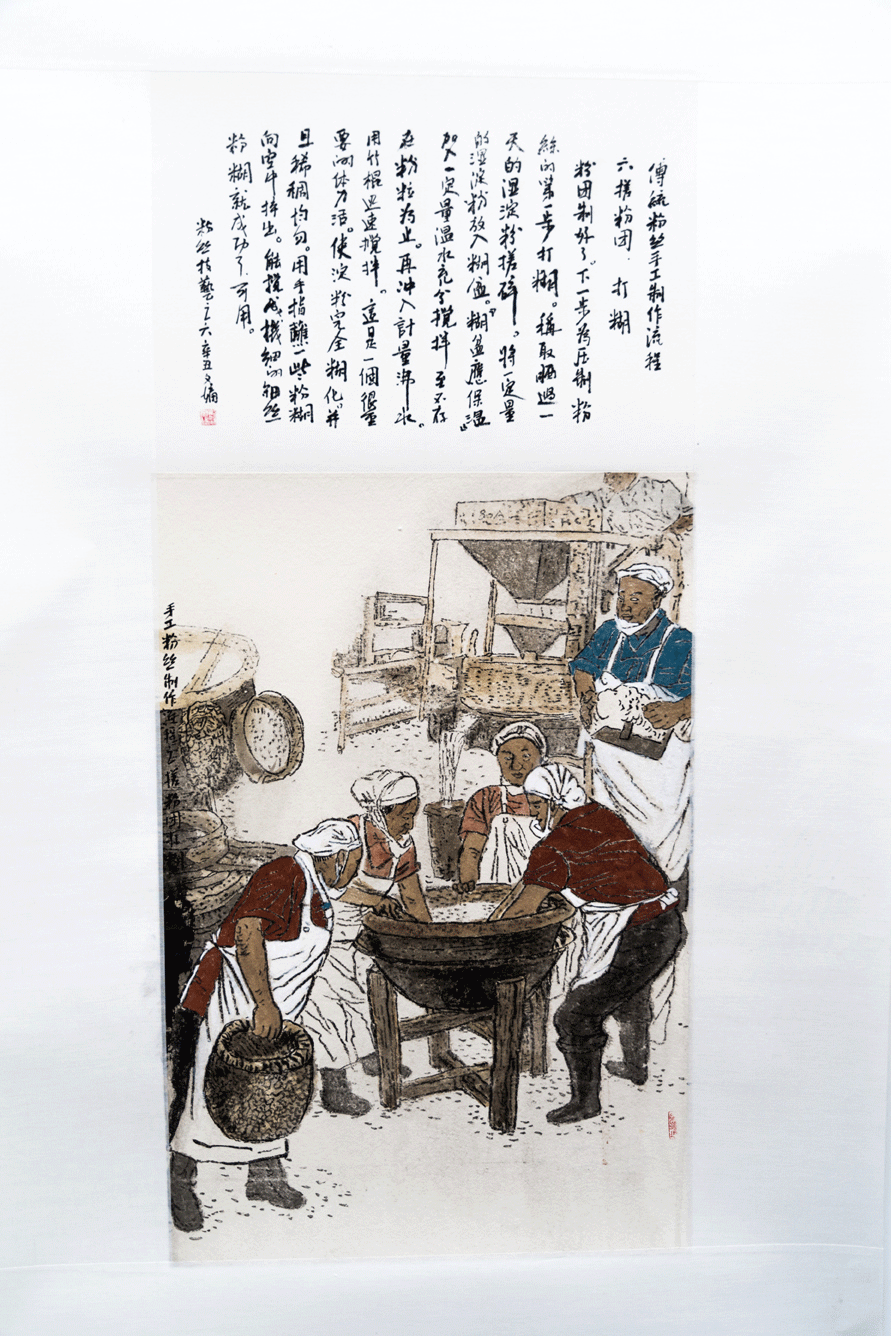 傳統粉丝手工制作流程
六搓粉团·打糊
粉团制好了。下一步为压制粉
絲的第一步打糊。稱取晒過一
天的湿淀粉搓碎。将一定量
的湿淀粉放入糊盆。糊盆應保温。
加入一定量温水充分攪拌至不存
在粉粒为止。再冲入計量沸水。
用竹棍迅速攪拌。這是一個很重
要的体力活。使淀粉完全糊化。并
且稀稠均匀。用手指蘸一些粉糊
向空中抖出。能撹成機细的细丝
粉糊就成功了可用。
粉丝技藝之六辛丑文嫡
手工粉丝制作 搓粉团打
80A